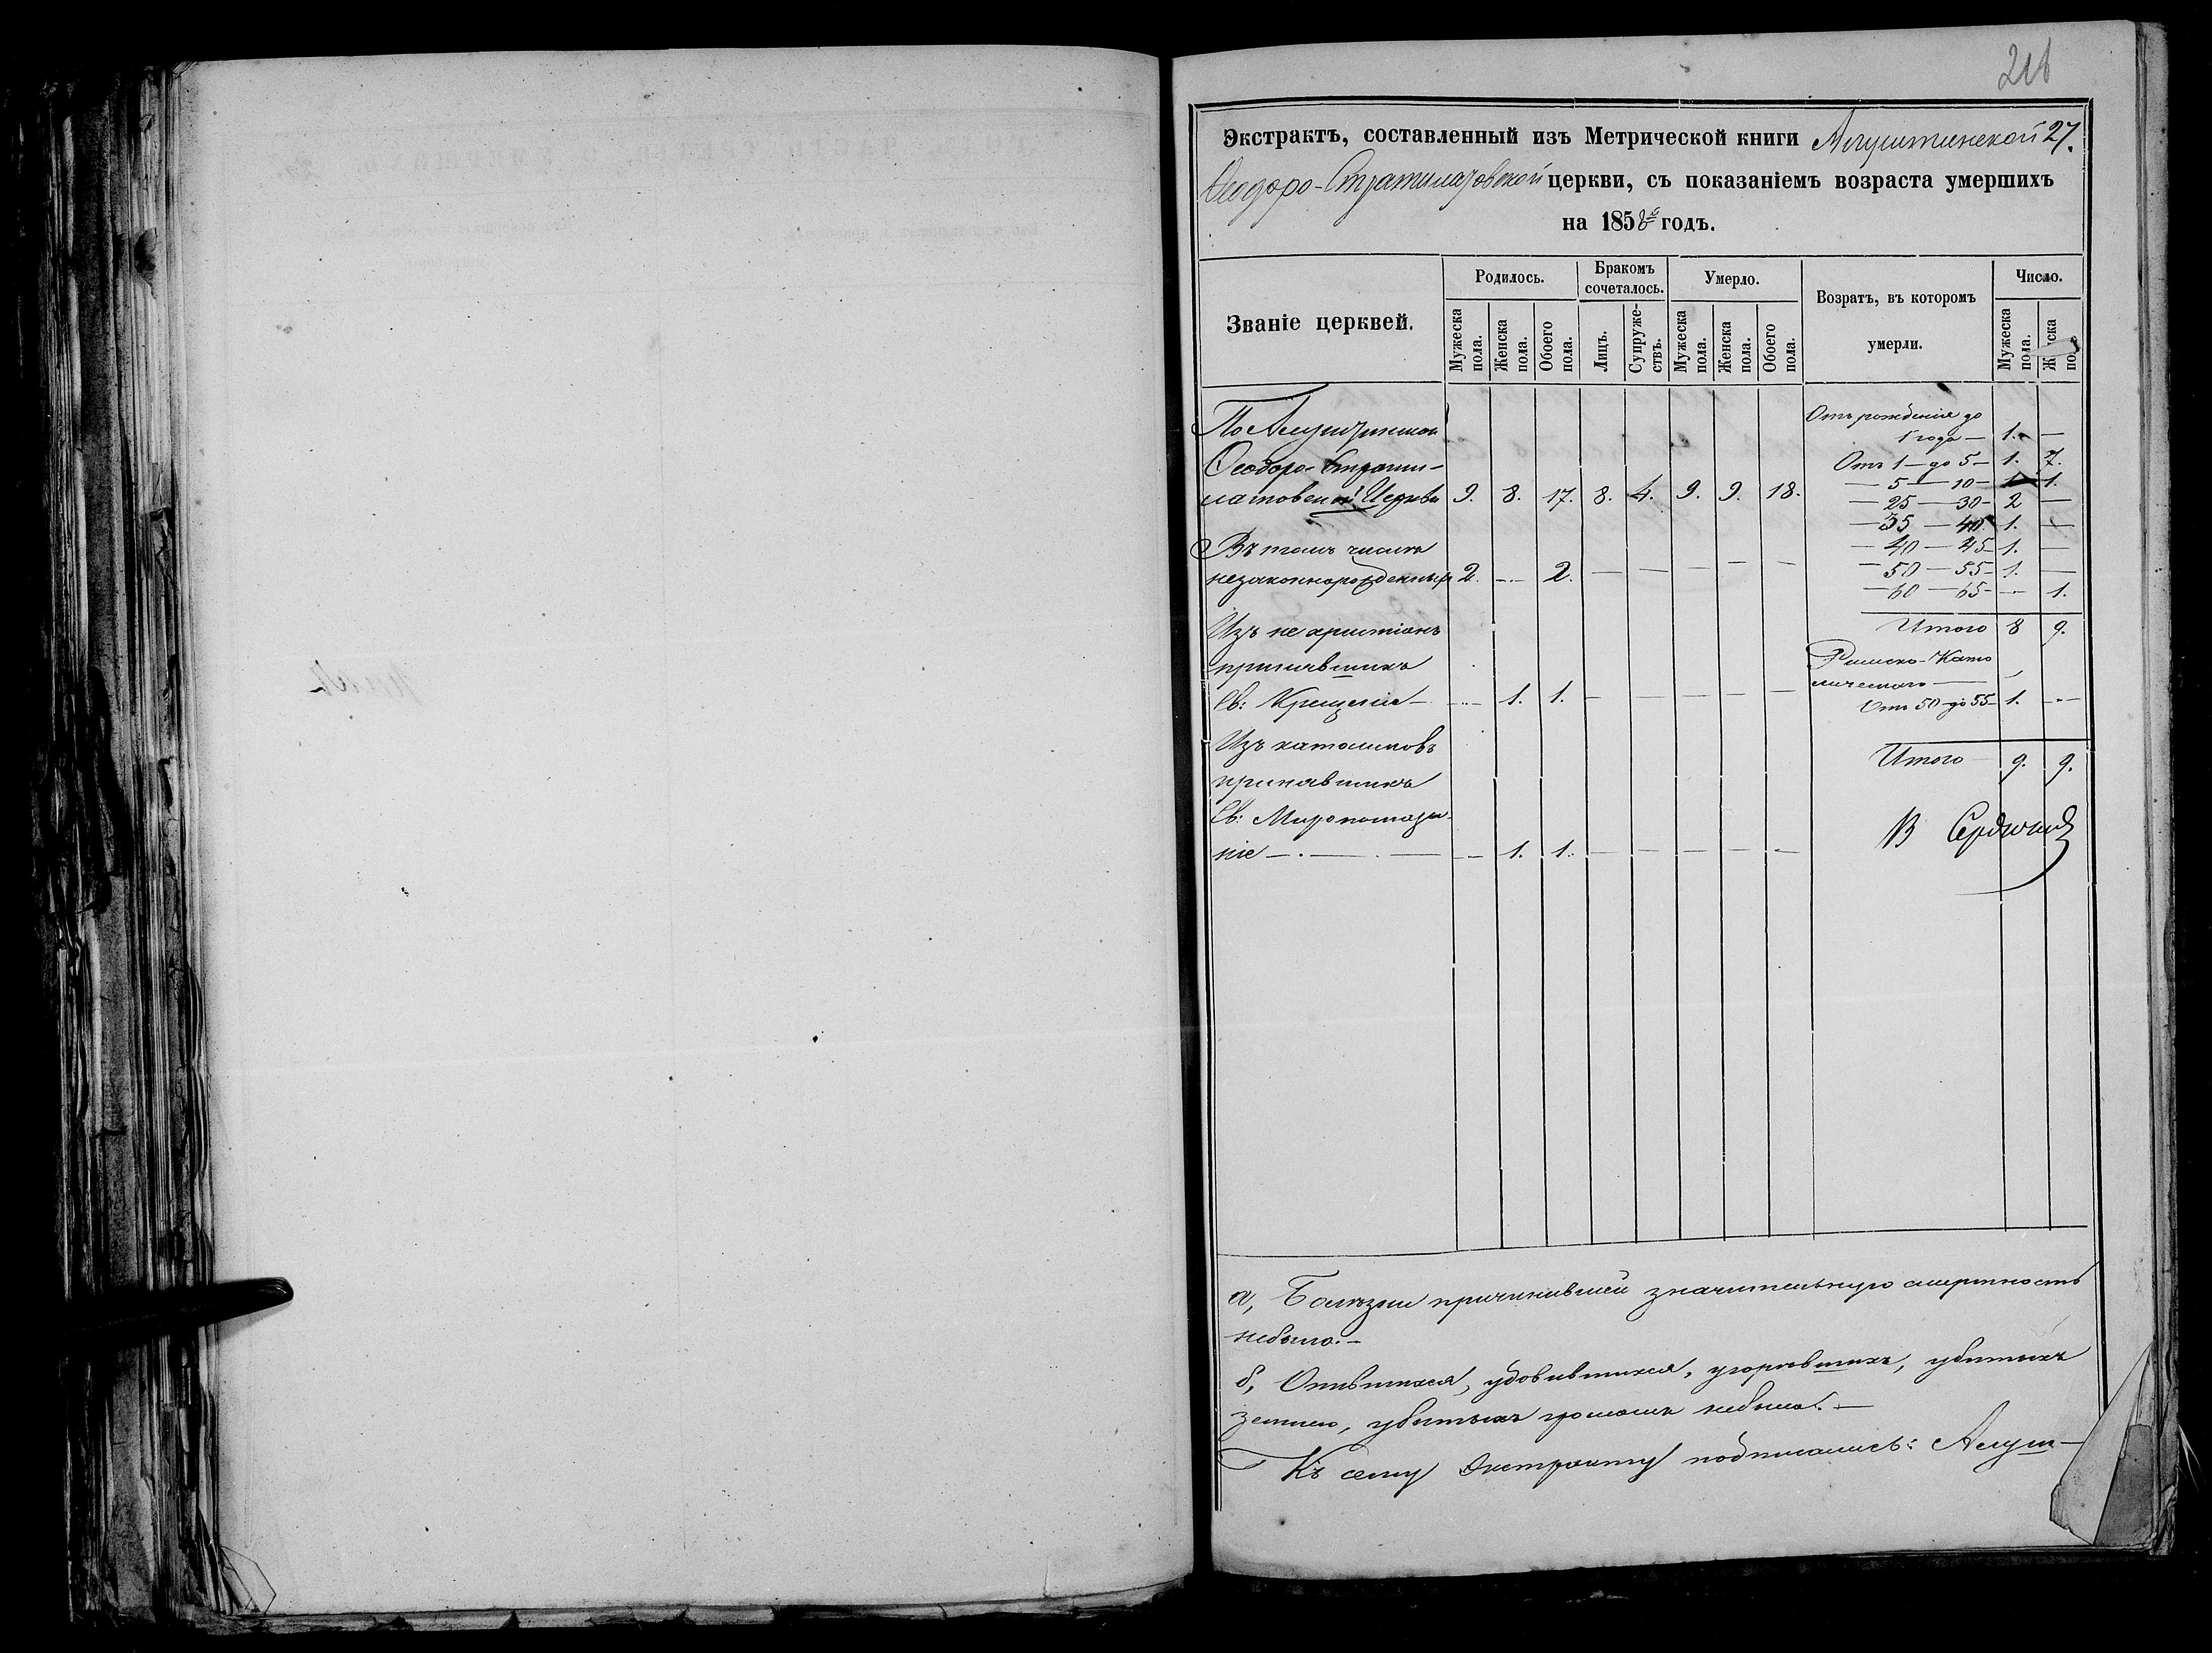 218
Экстрактъ, составленный изъ Метрической книги Алуштинской 27.
Ѳеодоро-Стратилатовской церкви, съ показаніемъ возраста умершихъ
на 1858й годъ.
Званіе церквей.
Родилось.
Бракомъ сочеталось.
Умерло.
Возратъ, въ которомъ умерли.
Число.
Мужеска пола.
Женска пола.
Обоего пола.
Лицъ.
Супружествъ.
Мужеска пола.
Женска пола.
Обоего пола.
Мужеска пола.
Отъ рожденія до
1 года — 1. —
По Алуштинской
Ѳеодоро-Страти-
латовской Церкви 9. 8. 17. 8. 4. 9. 9. 18.
Отъ 1 — до 5 — 1. 7.
— 5 — 10 — — 1.
— 25 — 30 — 2 —
— 35 — 40 1. —
— 40 — 45 — 1. —
— 50 — 55 — 1. —
— 60 — 65 — — 1.
Итого 8 9.
Въ томъ числѣ
незаконнорожденныхъ 2. — 2. — — — — —
Изъ не христіанъ
принявшихъ
Св: Крещеніе — — 1. 1. — — — — —
Римско-Като
лическаго —
Отъ 50 до 55 — 1. —
Итого 9. 9.
Изъ католиковъ
принявшихъ
Св: Миропомаза-
ніе — — — 1. 1. — — — — —
В
а, Болѣзни причинившей значительную смертность
небыло. —
б, Опившихся, удавившихся, угорѣвшихъ, убитыхъ
землею, убитыхъ громомъ небыло. —
Къ сему Экстракту подписались: Алуш-